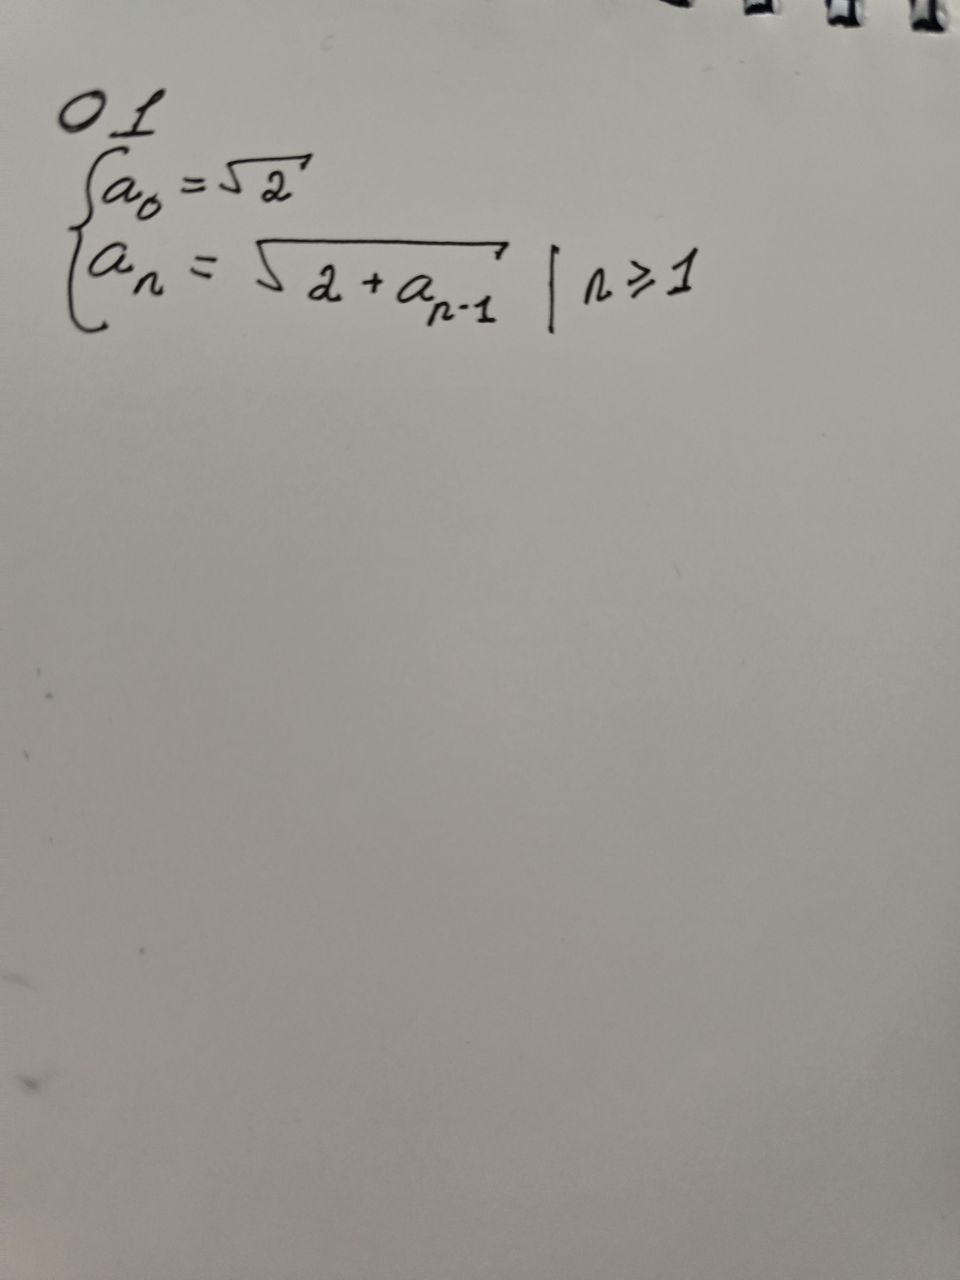 01
{a₀ = √2
{aₙ = √(2 + aₙ₋₁) | n ⩾ 1